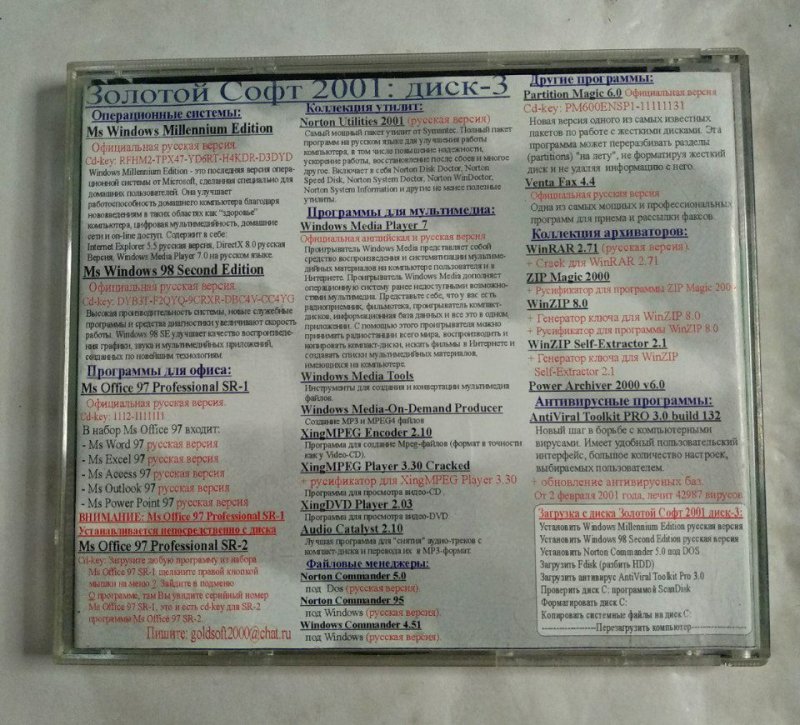 Золотой Софт 2001: диск-3
Операционные системы:
Ms Windows Millennium Edition
Официальная русская версия.
Cd-key: RFHM2-TPX47-YD6RT-H4KDR-D3DYD
Windows Millennium Edition - это последняя версия опера-
ционной системы от Microsoft, сделанная специально для
домашних пользователей. Она улучшает
работоспособность домашнего компьютера благодаря
нововведениям в таких областях как "здоровье"
компьютера, цифровая мультимедийность, домашние
сети и on-line доступ. Содержит в себе:
Internet Explorer 5.5 русская версия, DirectX 8.0 русская
Версия, Windows Media Player 7.0 на русском языке.
Ms Windows 98 Second Edition
Официальная русская версия.
Cd-key: DYB3T-F2QYQ-9CRXR-DBC4V-CC4YG
Высокая производительность системы, новые служебные
программы и средства диагностики увеличивают скорость
работы. Windows 98 SE улучшает качество воспроизведе-
ния графики, звука и мультимедийных приложений,
созданных по новейшим технологиям.
Программы для офиса:
Ms Office 97 Professional SR-1
Официальная русская версия.
Cd-key: 1112-1111111
В набор Ms Office 97 входит:
- Ms Word 97 русская версия
- Ms Excel 97 русская версия
- Ms Access 97 русская версия
- Ms Outlook 97 русская версия
- Ms Power Point 97 русская версия
ВНИМАНИЕ: Ms Office 97 Professional SR-1
Устанавливается непосредственно с диска
Ms Office 97 Professional SR-2
Cd-key: Загрузите любую программу из набора
Ms Office 97 SR-1 щелкните правой кнопкой
мышки на меню ?. Зайдите в подменю
О программе, там Вы увидите серийный номер
Ms Office 97 SR-1, это и есть cd-key для SR-2
программы Ms Office 97 SR-2.
Пишите: goldsoft2000@chat.ru
Коллекция утилит:
Norton Utilities 2001 (русская версия)
Самый мощный пакет утилит от Symantec. Полный пакет
программ на русском языке для улучшения работы
компьютера, в том числе повышение надежности,
ускорение работы, восстановление после сбоев и многое
другое. Включает в себя Norton Disk Doctor, Norton
Speed Disk, Norton System Doctor, Norton WinDoctor,
Norton System Information и другие не менее полезные
утилиты.
Программы для мультимедиа:
Windows Media Player 7
Официальная английская и русская версия
Проигрыватель Windows Media представляет собой
средство воспроизведения и систематизации мультиме-
дийных материалов на компьютере пользователя и в
Интернете. Проигрыватель Windows Media дополняет
операционную систему ранее недоступными возможно-
стями мультимедиа. Представьте себе, что у вас есть
радиоприемник, фильмотека, проигрыватель компакт-
дисков, информационная база данных и все это в одном
приложении. С помощью этого проигрывателя можно
принимать радиостанции всего мира, воспроизводить и
копировать компакт-диски, искать фильмы в Интернете и
создавать списки мультимедийных материалов,
имеющихся на компьютере.
Windows Media Tools
Инструменты для создания и конвертации мультимедиа
файлов.
Windows Media-On-Demand Producer
Создание MP3 и MPEG4 файлов
XingMPEG Encoder 2.10
Программа для создание Mpeg-файлов (формат в точности
как у Video-CD).
XingMPEG Player 3.30 Cracked
+ русификатор для XingMPEG Player 3.30
Программа для просмотра видео-CD.
XingDVD Player 2.03
Программа для просмотра видео-DVD.
Audio Catalyst 2.10
Лучшая программа для "снятия" аудио-треков с
компакт-диска и перевода их в MP3-формат.
Файловые менеджеры:
Norton Commander 5.0
под Dos (русская версия).
Norton Commander 95
под Windows (русская версия).
Windows Commander 4.51
под Windows (русская версия).
Другие программы:
Partition Magic 6.0 Официальная версия
Cd-key: PM600ENSP1-11111131
Новая версия одного из самых известных
пакетов по работе с жесткими дисками. Эта
программа может переразбивать разделы
(partitions) "на лету", не форматируя жесткий
диск и не удаляя информацию с него.
Venta Fax 4.4
Официальная русская версия
Одна из самых мощных и профессиональных
программ для приема и рассылки факсов.
Коллекция архиваторов:
WinRAR 2.71 (русская версия).
+ Crack для WinRAR 2.71
ZIP Magic 2000
+ Русификатор для программы ZIP Magic 200
WinZIP 8.0
+ Генератор ключа для WinZIP 8.0
+ Русификатор для программы WinZIP 8.0
WinZIP Self-Extractor 2.1
+ Генератор ключа для WinZIP
Self-Extractor 2.1
Power Archiver 2000 v6.0
Антивирусные программы:
AntiViral Toolkit PRO 3.0 build 132
Новый шаг в борьбе с компьютерными
вирусами. Имеет удобный пользовательский
интерфейс, большое количество настроек,
выбираемых пользователем.
+ обновление антивирусных баз.
От 2 февраля 2001 года, лечит 42987 вирусов
Загрузка с диска Золотой Софт 2001 диск-3:
Установить Windows Millennium Edition русская версия
Установить Windows 98 Second Edition русская версия
Установить Norton Commander 5.0 под DOS
Загрузить Fdisk (разбить HDD)
Загрузить антивирус AntiViral Toolkit Pro 3.0
Проверить диск C: программой ScanDisk
Форматировать диск C:
Копировать системные файлы на диск C:
---------------Перезагрузить компьютер---------------